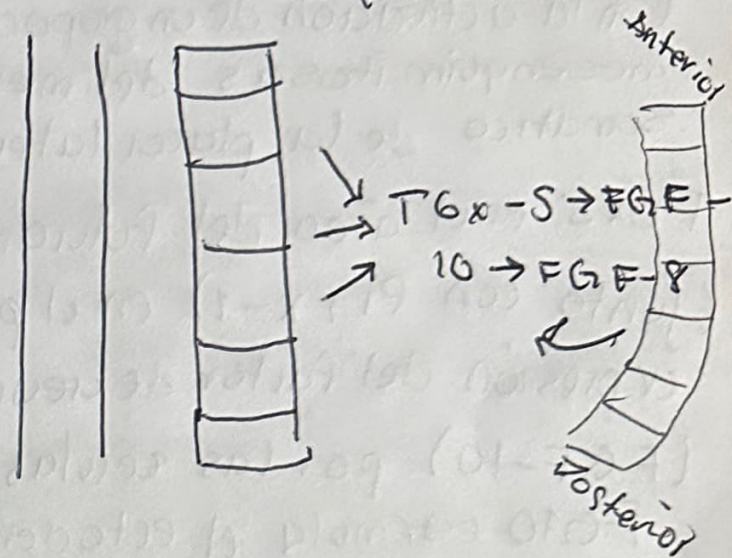 Anterior
T6x-5 → FGF-
10 → FGF-8
Posterior